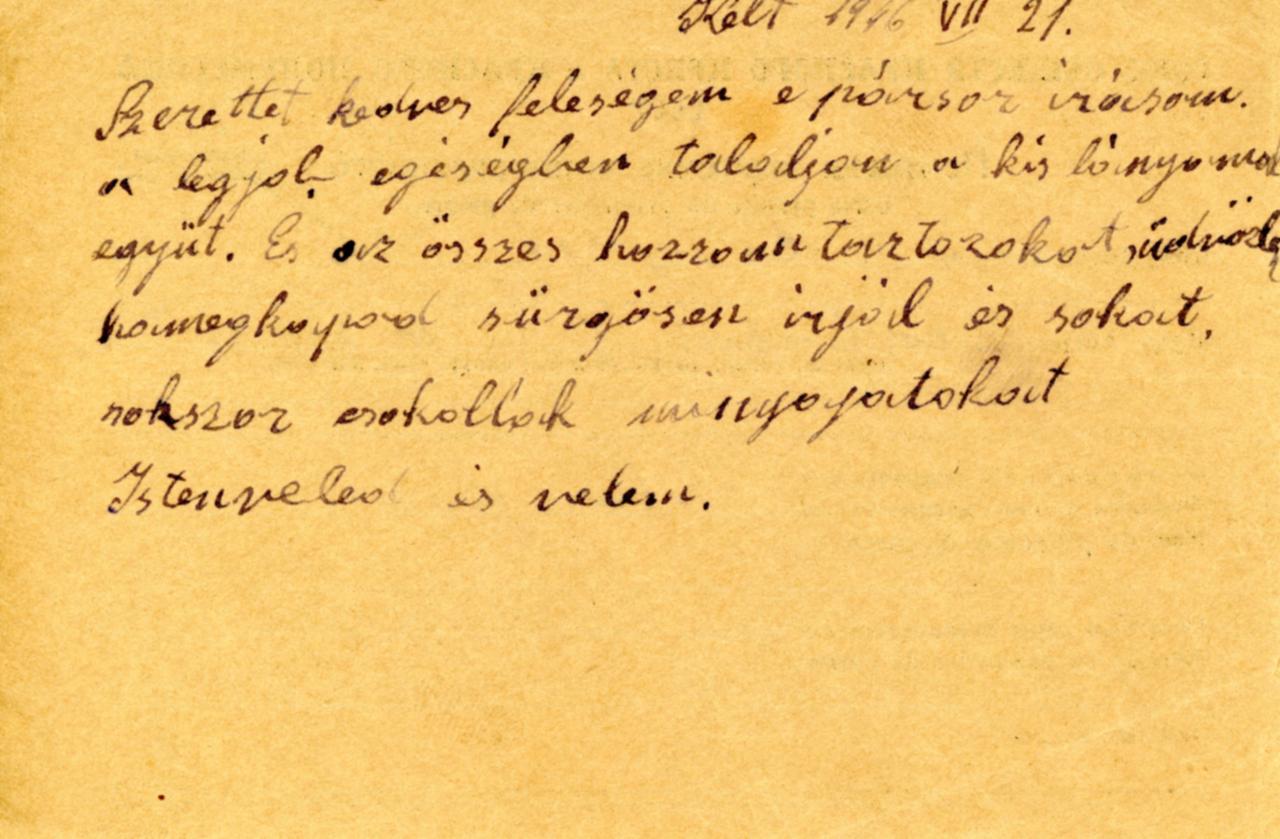 Kelt 1946 VII 21.
Szerettet kedves feleségem e pársor irásom.
a legjob egéségben taladjon a kis lányomal
együt. Es az összes hozzam tartozokat üdvözlö
hamegkapod sürgösen irjál és sokat,
sokszor csokollak minyájatokat
Istenveled és velem.